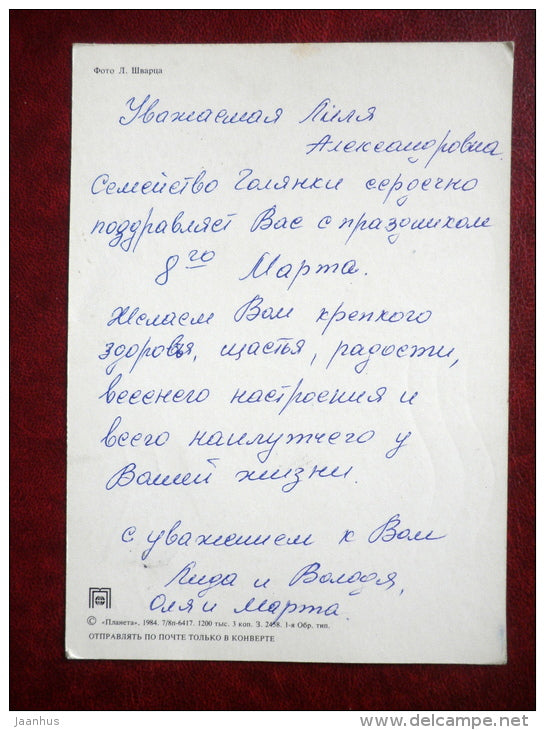 Фото Л. Шварца
Уважаемая Лиля
Александровна.
Семейство Голянки сердечно
поздравляет Вас с праздником
8го Марта.
Желаем Вам крепкого
здоровья, щастья, радости,
весеннего настроения и
всего наилутчего у
Вашей жизни.
С уважением к Вам
Лида и Володя,
Оля и Марта.
© «Планета». 1984. 7/8п-6417. 1200 тыс. 3 коп. З. 2458. 1-я Обр. тип.
ОТПРАВЛЯТЬ ПО ПОЧТЕ ТОЛЬКО В КОНВЕРТЕ
jaanhus
www.delcampe.net